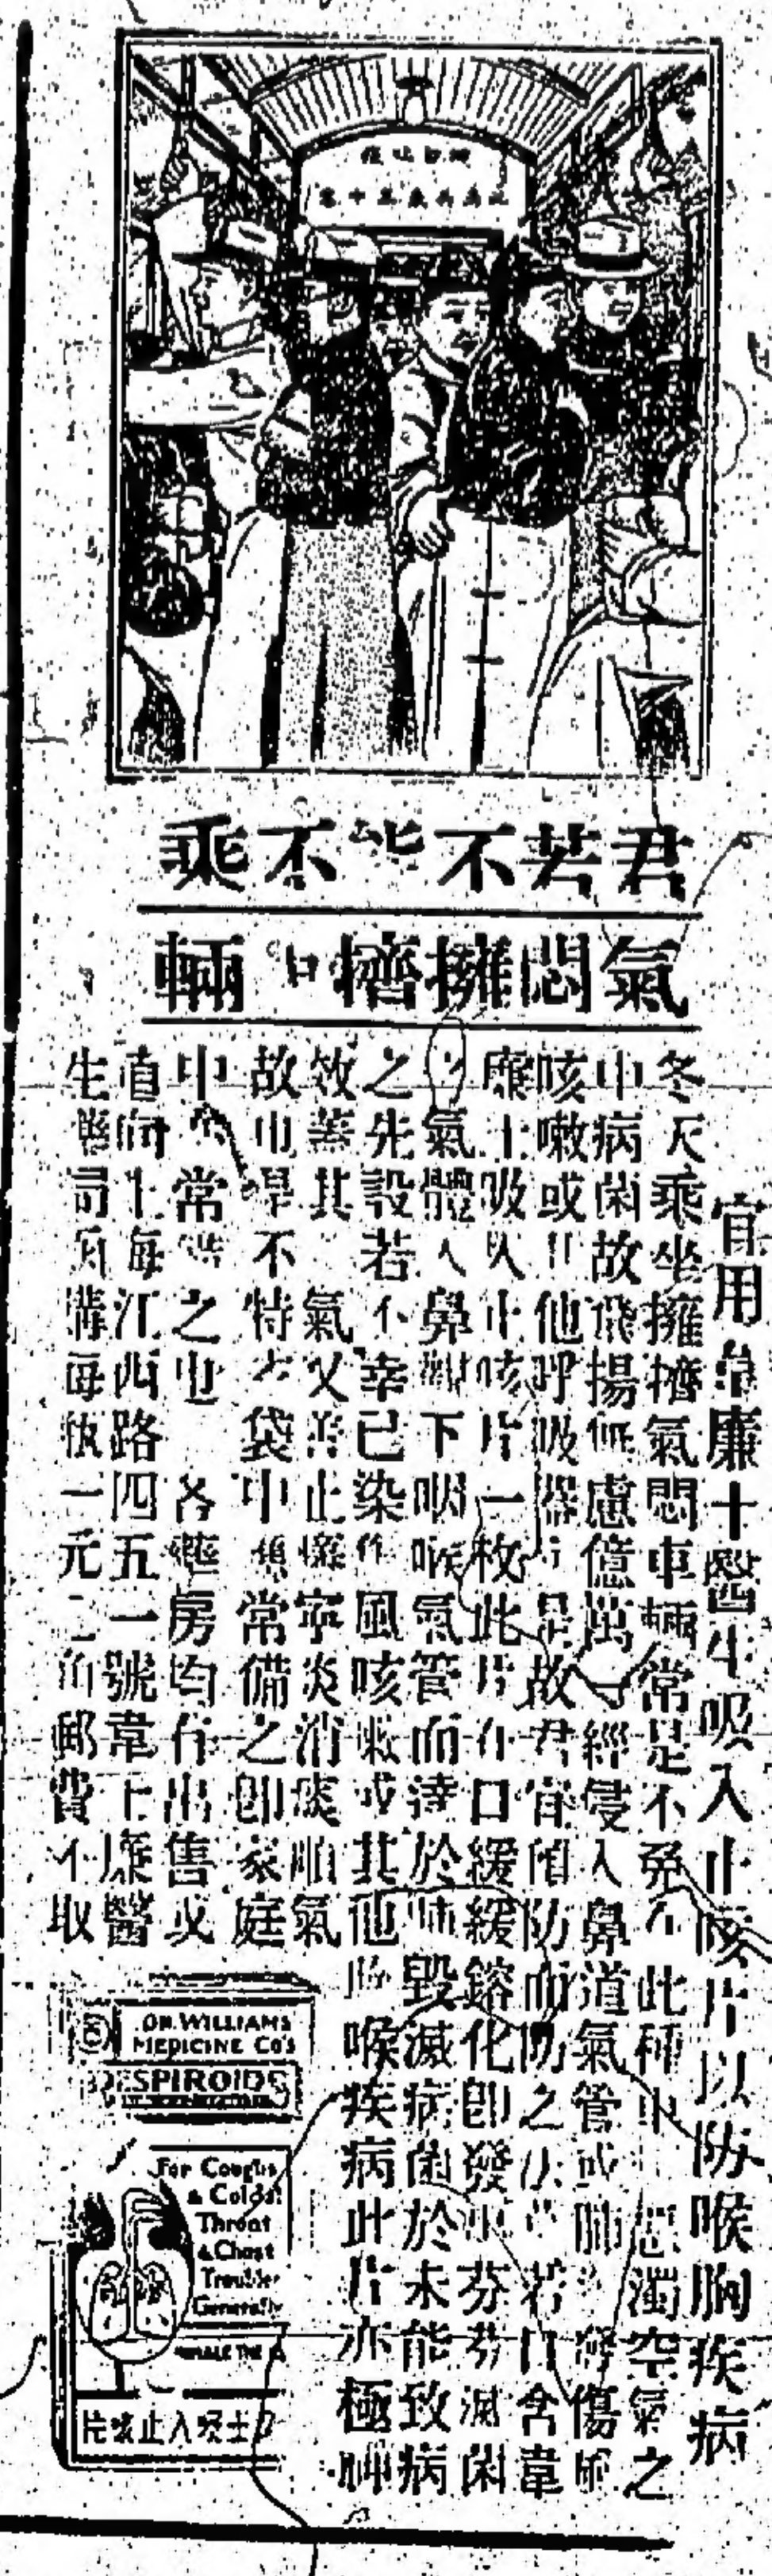 君若不能不乘
氣悶擁擠車輛
宜用韋廉士醫生吸入止咳片以防喉胸疾病
冬天乘坐擁擠氣悶車輛常是不免在此種車中惡濁空氣之
中病菌故飛揚無慮億萬一經侵入鼻道氣管或肺 發傷風
咳嗽或其他呼吸器 是故君宜預防而防之法 若口含韋
廉士吸入止咳片一枚此片在口緩緩鎔化即發出芬芳滅菌
氣體入鼻 下咽喉氣管而達於肺毀滅病菌於未能致病
之先設若不幸已染傷風咳嗽或其他胸喉疾病此片亦極神
效蓋其 氣又善止癢寧炎消痰順氣
故也是不特衣袋中須常備之即家庭
中亦常 之也 各藥房均有出售或
直向上海江西路四五一號韋廉士醫
生藥局函購每瓶一元二角郵費不取
DR. WILLIAMS
MEDICINE CO'S
RESPIROIDS
For Coughs
& Colds
Throat
& Chest
Troubles
Generally
INHALE THE
士吸入止咳片